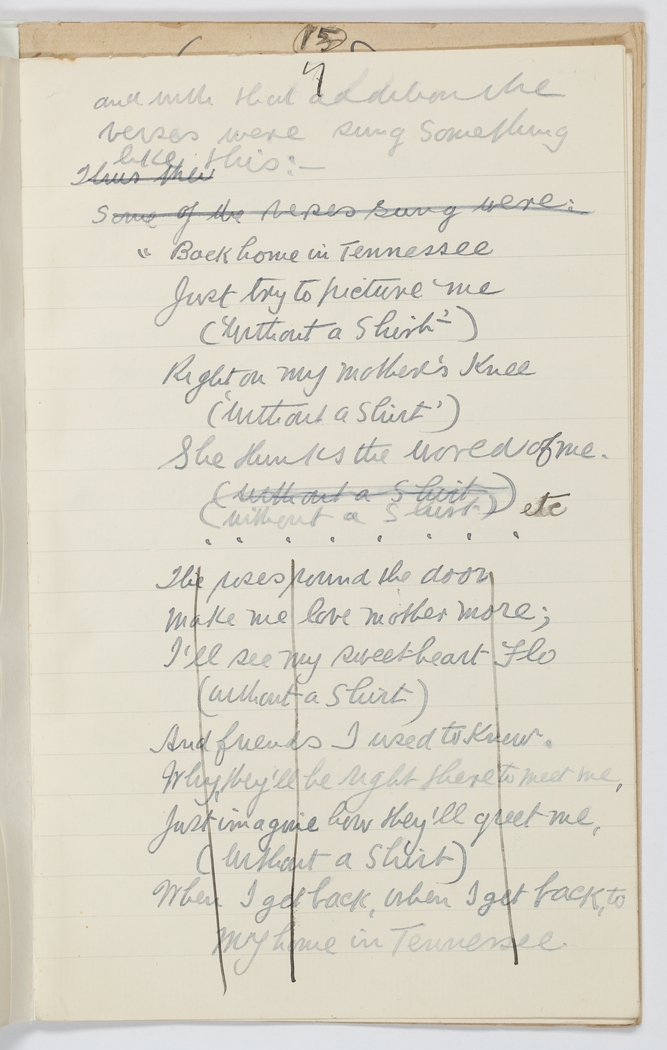 15
7
and with that addition the
verses were sung something
like this:—
Thus then
Some of the verses sung were:
" Back home in Tennessee
Just try to picture me
('Without a Shirt')
Right on my mother's Knee
('Without a Shirt')
She thinks the world of me.
(Without a Shirt)
(without a Shirt) etc
The roses round the door
Make me love mother more;
I'll see my sweetheart Flo
(without a Shirt)
And friends I used to Know.
Why, they'll be right there to meet me,
Just imagine how they'll greet me,
(Without a Shirt)
When I get back, when I get back, to
My home in Tennessee.